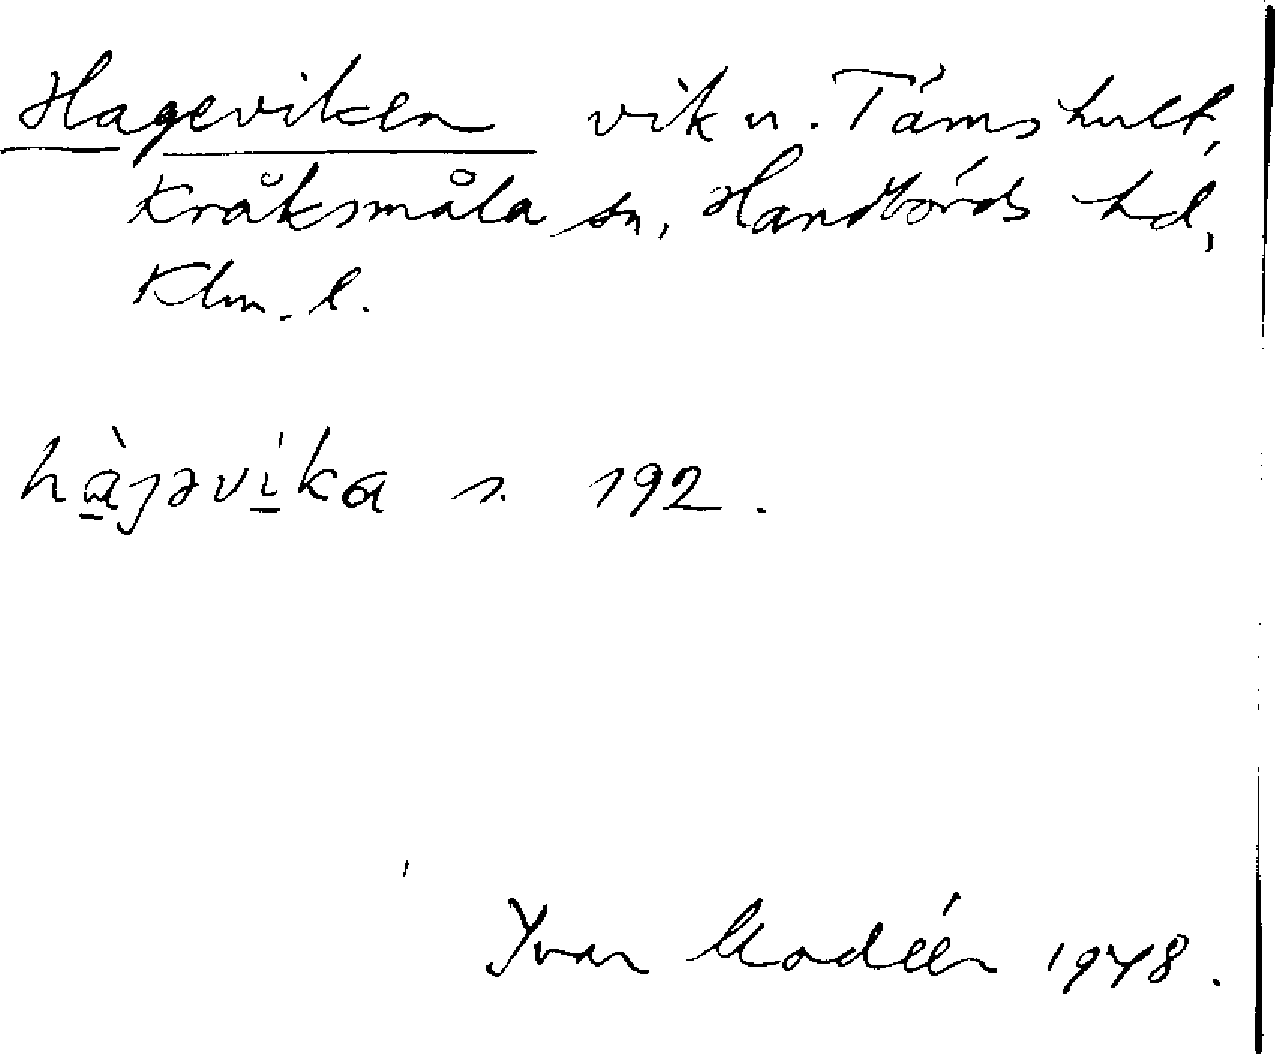 Hageviken vik u. Támshult,
Kråksmåla sn, Handbörds hd,
Klm. l.
hàjəvíka s. 192.
Yvar Modéer 1948.